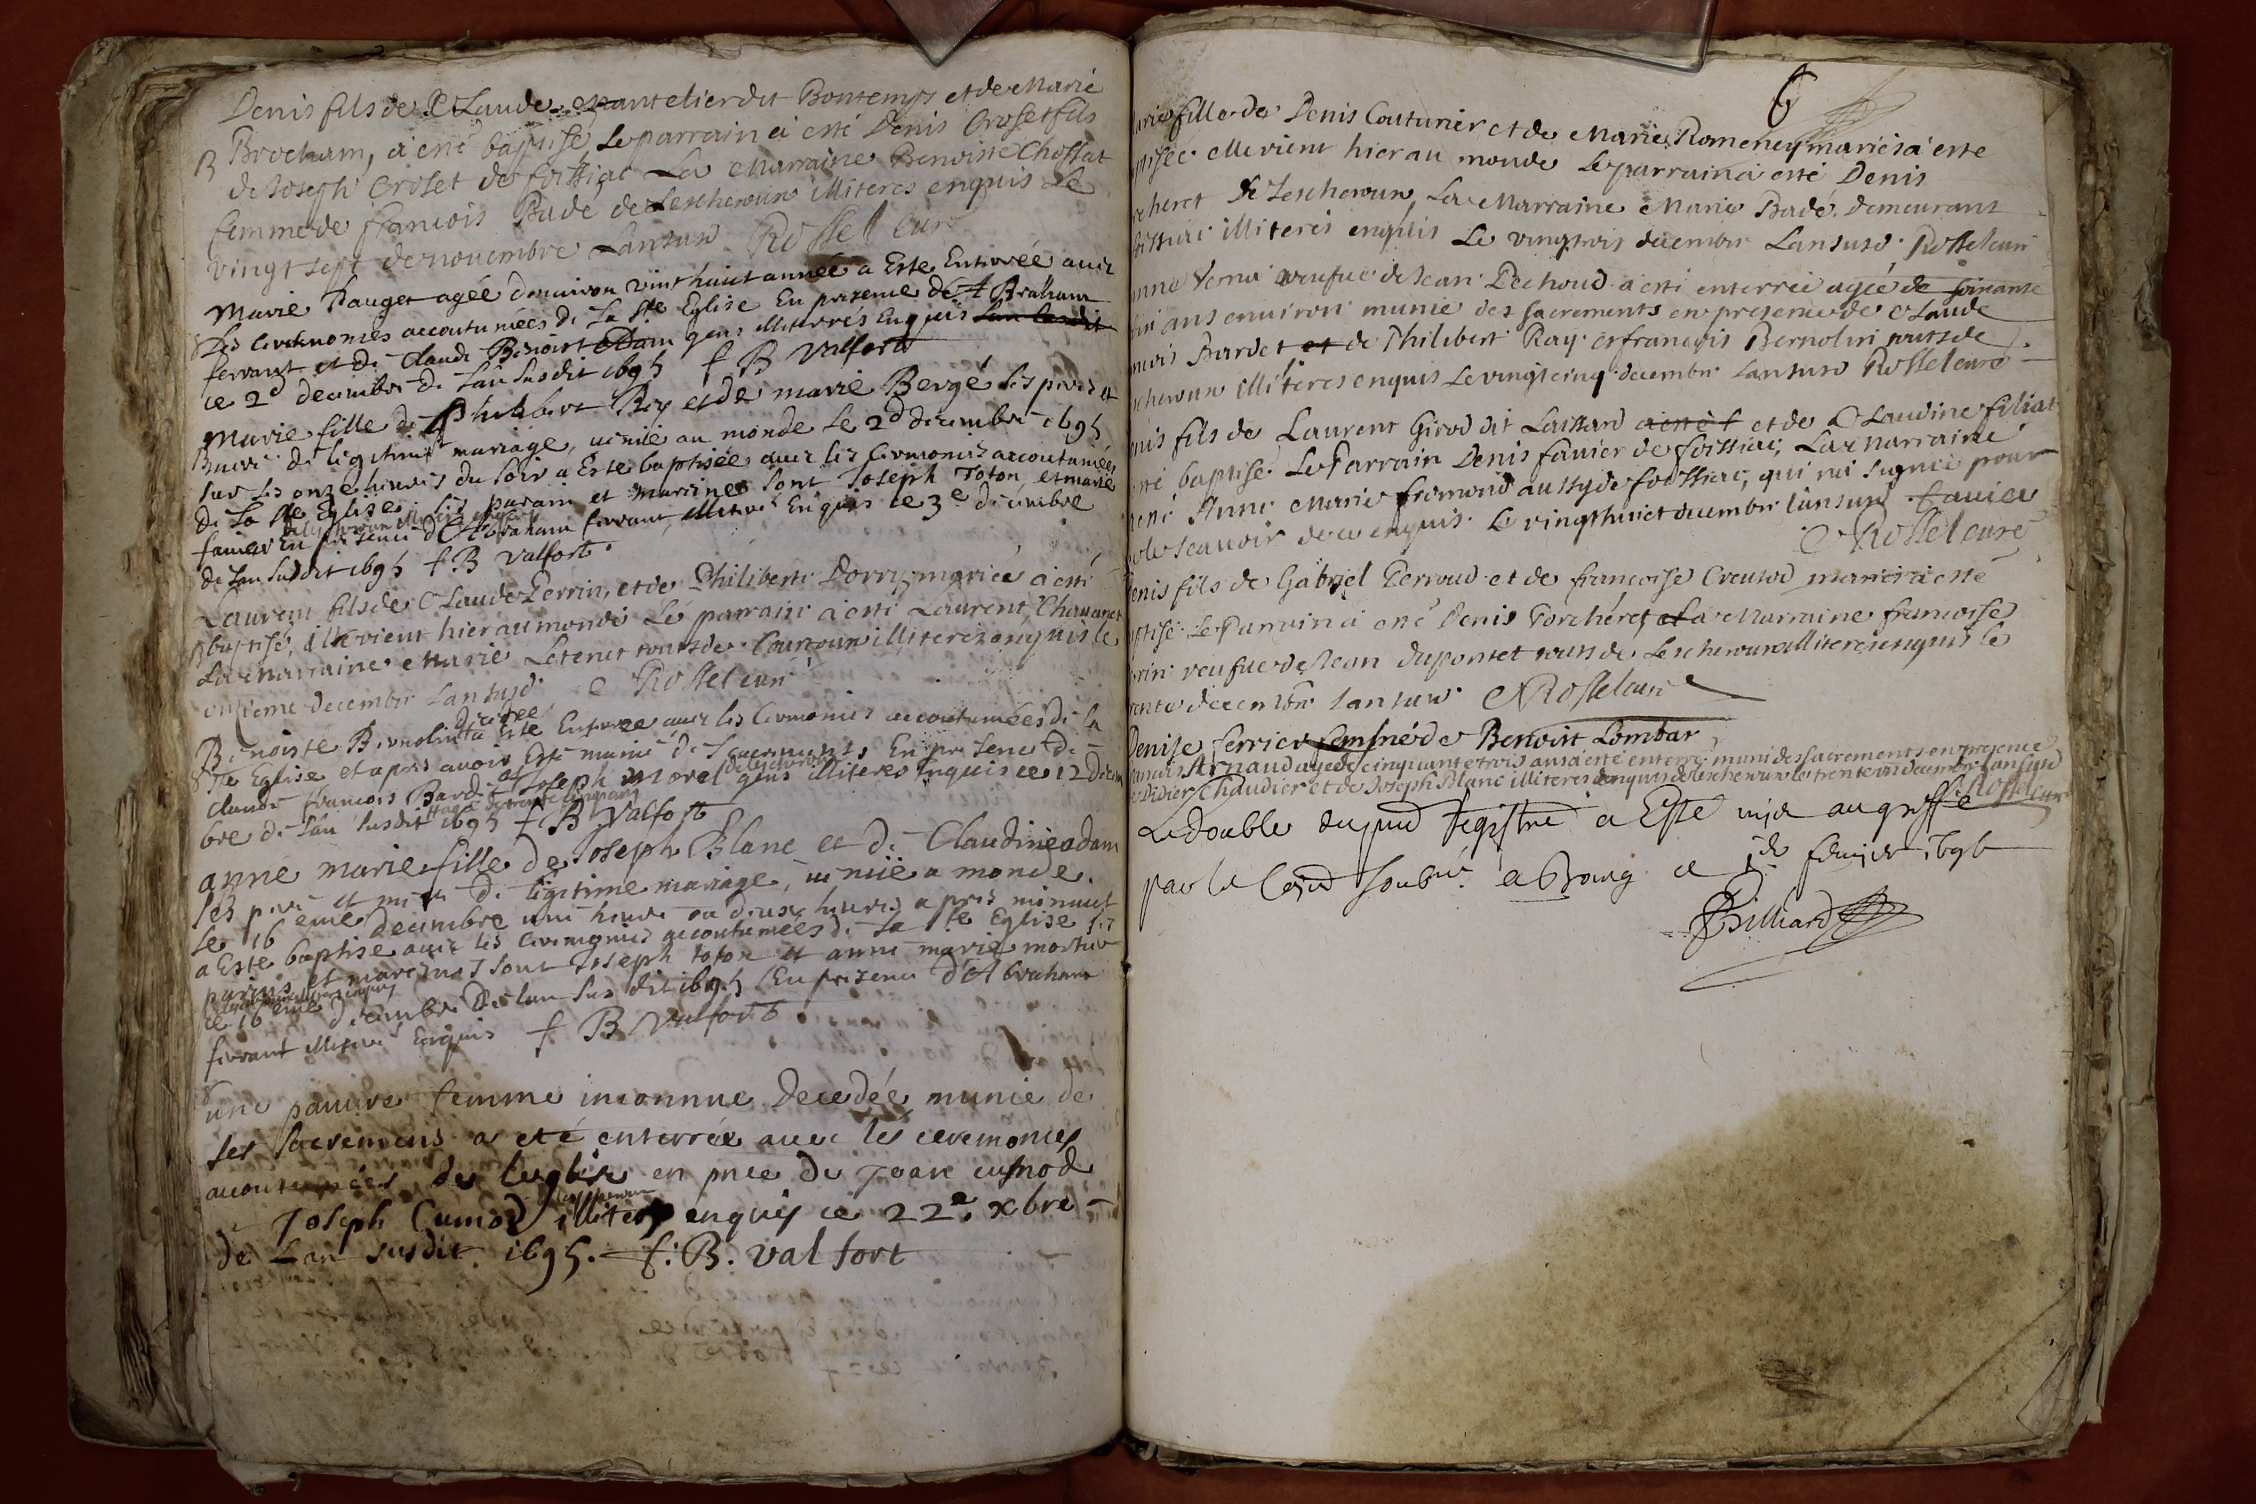 Denis fils de Claude pantelier dit Bontemps et de Marie
B Brocham, a esté baptisé, le parrain a esté Denis Croset fils
de Joseph Croset de foissiac La Marraine Benoiste Chossat
femme de francois Bade de Lescheroux illiteres enquis Le
vingt sept de novembre Lansusd Rossel curé
Marie Pauget agée denuiron vint huict année a Este Enterrée auec
Les Ceremonies accoutumées de La Ste Eglise En presence de ABraham
ferrant et de Claude Benoist Adam gens illiterés Enquis
ce 2d decembre de Lan susdit 1695 f B Valfort
Marie fille de Philibert Rey et de marie Bergé ses pere et
de legitime mariage, venüe au monde le 2d decembre 1695
sur les onze heures du soir a Este baptisée auec les Ceremonies accoutumées
de La Ste Eglise, ses parain et marrines sont Joseph Toton, et marie
favier En presence d'Abraham ferrant, illiteré Enquis le 3e decembre
de Lan susdit 1695 f. B Valfort.
Laurent fils de Claude Perrin, et de Philiberte Dorry mariés a esté
B baptisé, il vient hier au monde Le parrain a esté Laurent
La marraine Marie Letenet touts de Courtoux illiteres enquis le
onzieme decembre Lansusd Rossel curé
decedee
Benoiste Bernolin a Este Enterrée auec les Ceremonies accoutumées de la
Ste Eglise et apres auoir Esté munie de Sacrements, En presence de
de lescheroux
Claude francois Bardet et Joseph Morel gens illiteres Enquis ce 12 decem
agée de trente cinq ans
bre de Lan susdit 1695 f B Valfort
anne marie fille de Joseph Blanc et de Claudine adam
ses pere et mere de legitime mariage, venüe a monde
le 16 eme decembre une heure ou deux heures apres minuict
a Este baptise auec les ceremonies accoutumées de La Ste Eglise ses
parins et marrines sont Joseph toton et anne marie
ce 16 eme decembre De lan sus dit 1695 En presence d'Abraham
ferrant illiteré Enquis f B Valfort.
une pauure femme inconnue Decedée munie de
ses sacremens a eté enterrée auec les ceremonies
accoutumées de leglise en pnce de Joan cusnod
Joseph Cumod illiteres enquis ce 22e xbre
de Lan susdit 1695. f. B. Valfort
6
arie fille de Denis Couturier et de Marie Romeney mariés a esté
ptisée elle vient hier au monde Le parrain a esté Denis
cheret de Lescheroux, La Marraine Marie Badé. demeurant
foissiac illiteres enquis Le vingtrois decembre Lansusd. Rossel curé
anne Verna veufue de Jean Pechoud a esté enterrée agée de soixante
ans environ munie des sacrements en presence de Claude
ncois Bardet et de Philibert Ray et francois Bernolin touts de
cheroux illiteres enquis Le vingt cinq decembre Lansusd Rossel curé
enis fils de Laurent Girod dit Laissard a esté et de Claudine filiat
esté baptisé. Le Parrain Denis favier de foissiac, La Marraine
Anne Marie fromond aussy de foissiac, qui na signée pour
le scauoir de ce enquis. Le vingt huict decembre Lansusd favier
Rossel curé
Denis fils de Gabriel Perroud et de francoise Creusod mariés a esté
ptisé. Le Parrain a esté Denis Porcheret et La Marraine francoise
rin veufue de Jean dupontet touts de Lescheroux illiteres enquis le
rente decembre Lansusd Rossel curé
Denise ferrier femme de Benoist Lombar
ancois Arnaud agé de cinquante trois ans a esté enterré muni des sacrements en presence
e Didier Chaudier et de Joseph Blanc illiteres enquis de lescheroux le trente un decembre Lansusd
Rossel curé
Le double du pnt Registre a Esté mis au greffe
par le Curé soubné a Bourg ce 1er feurier 1696
Billiard